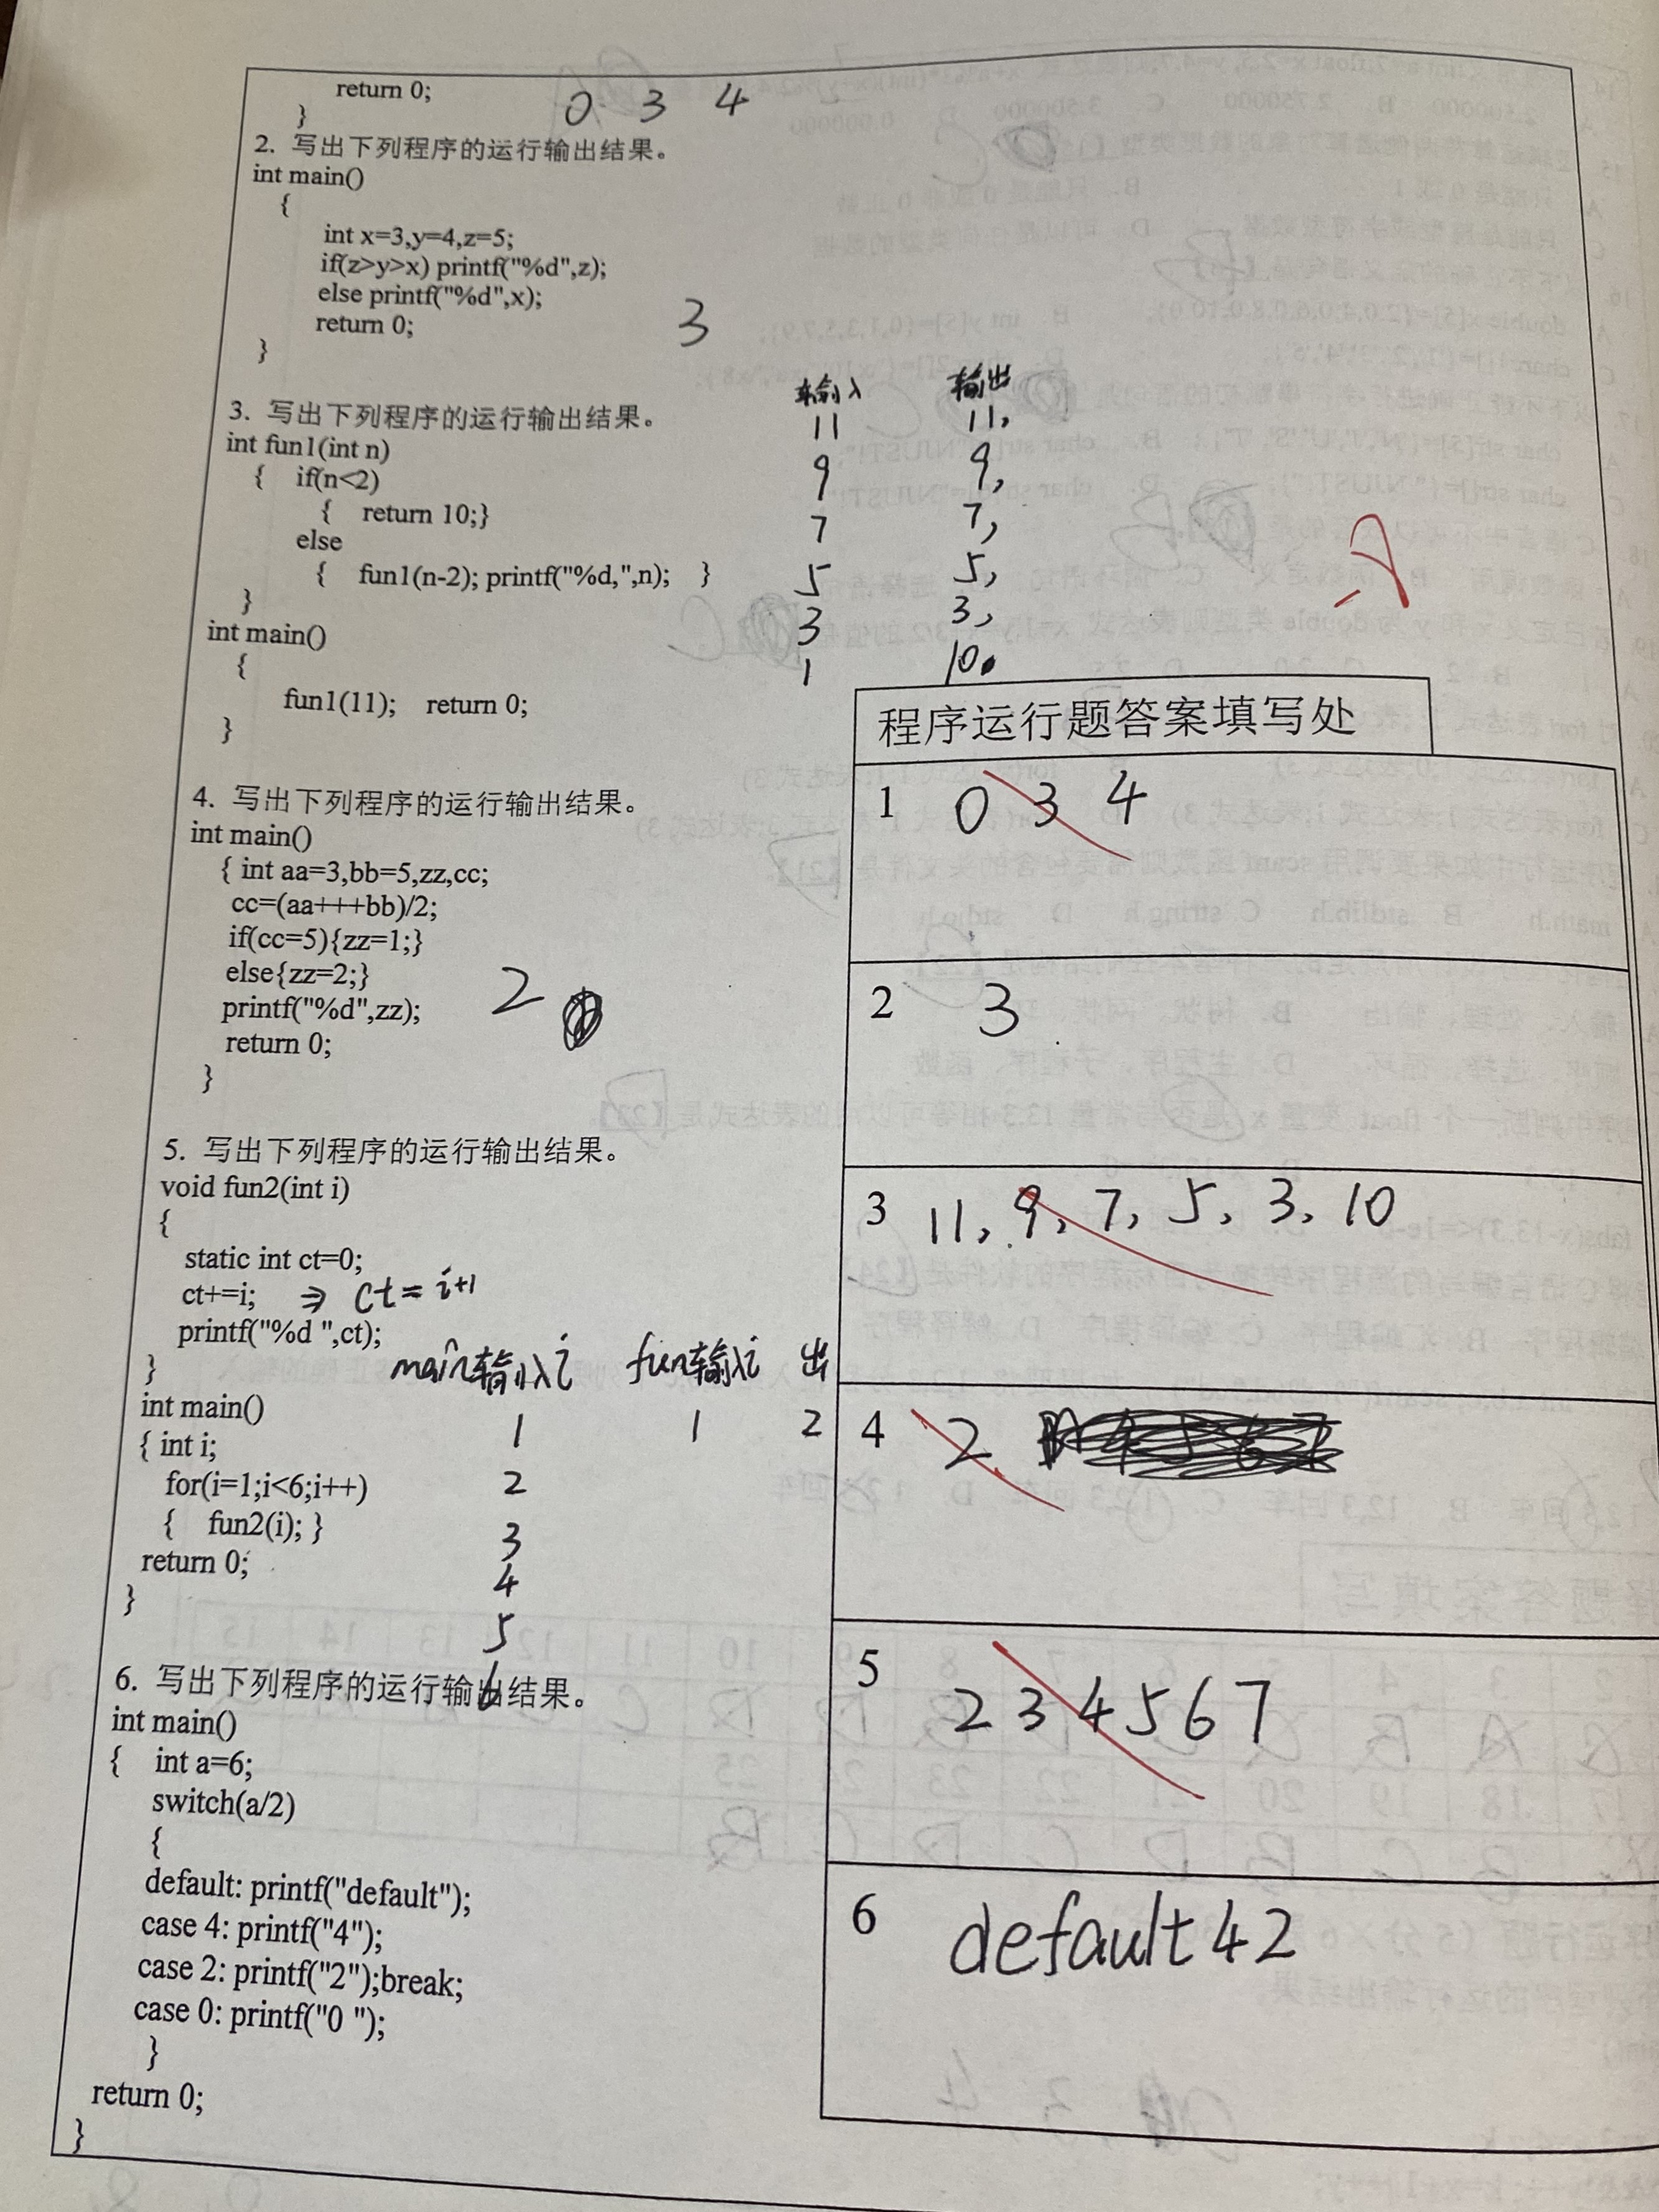 return 0;
}
0 3 4
2. 写出下列程序的运行输出结果。
int main()
{
int x=3,y=4,z=5;
if(z>y>x) printf("%d",z);
else printf("%d",x);
return 0;
}
3
3. 写出下列程序的运行输出结果。
int fun1(int n)
{ if(n<2)
{ return 10;}
else
{ fun1(n-2); printf("%d,",n); }
}
int main()
{
fun1(11); return 0;
}
输入 输出
11 11,
9 9,
7 7,
5 5,
3 3,
1 10
4. 写出下列程序的运行输出结果。
int main()
{ int aa=3,bb=5,zz,cc;
cc=(aa+++bb)/2;
if(cc=5){zz=1;}
else{zz=2;}
printf("%d",zz);
return 0;
}
2
5. 写出下列程序的运行输出结果。
void fun2(int i)
{
static int ct=0;
ct+=i; ⇒ ct=i+1
printf("%d ",ct);
}
int main()
{ int i;
for(i=1;i<6;i++)
{ fun2(i); }
return 0;
}
main输入i fun输入i 出
1 1 2
2
3
4
5
6
6. 写出下列程序的运行输出结果。
int main()
{ int a=6;
switch(a/2)
{
default: printf("default");
case 4: printf("4");
case 2: printf("2");break;
case 0: printf("0 ");
}
return 0;
}
程序运行题答案填写处
1 0 3 4
2 3
3 11, 9, 7, 5, 3, 10
4 2
5 2 3 4 5 6 7
6 default42